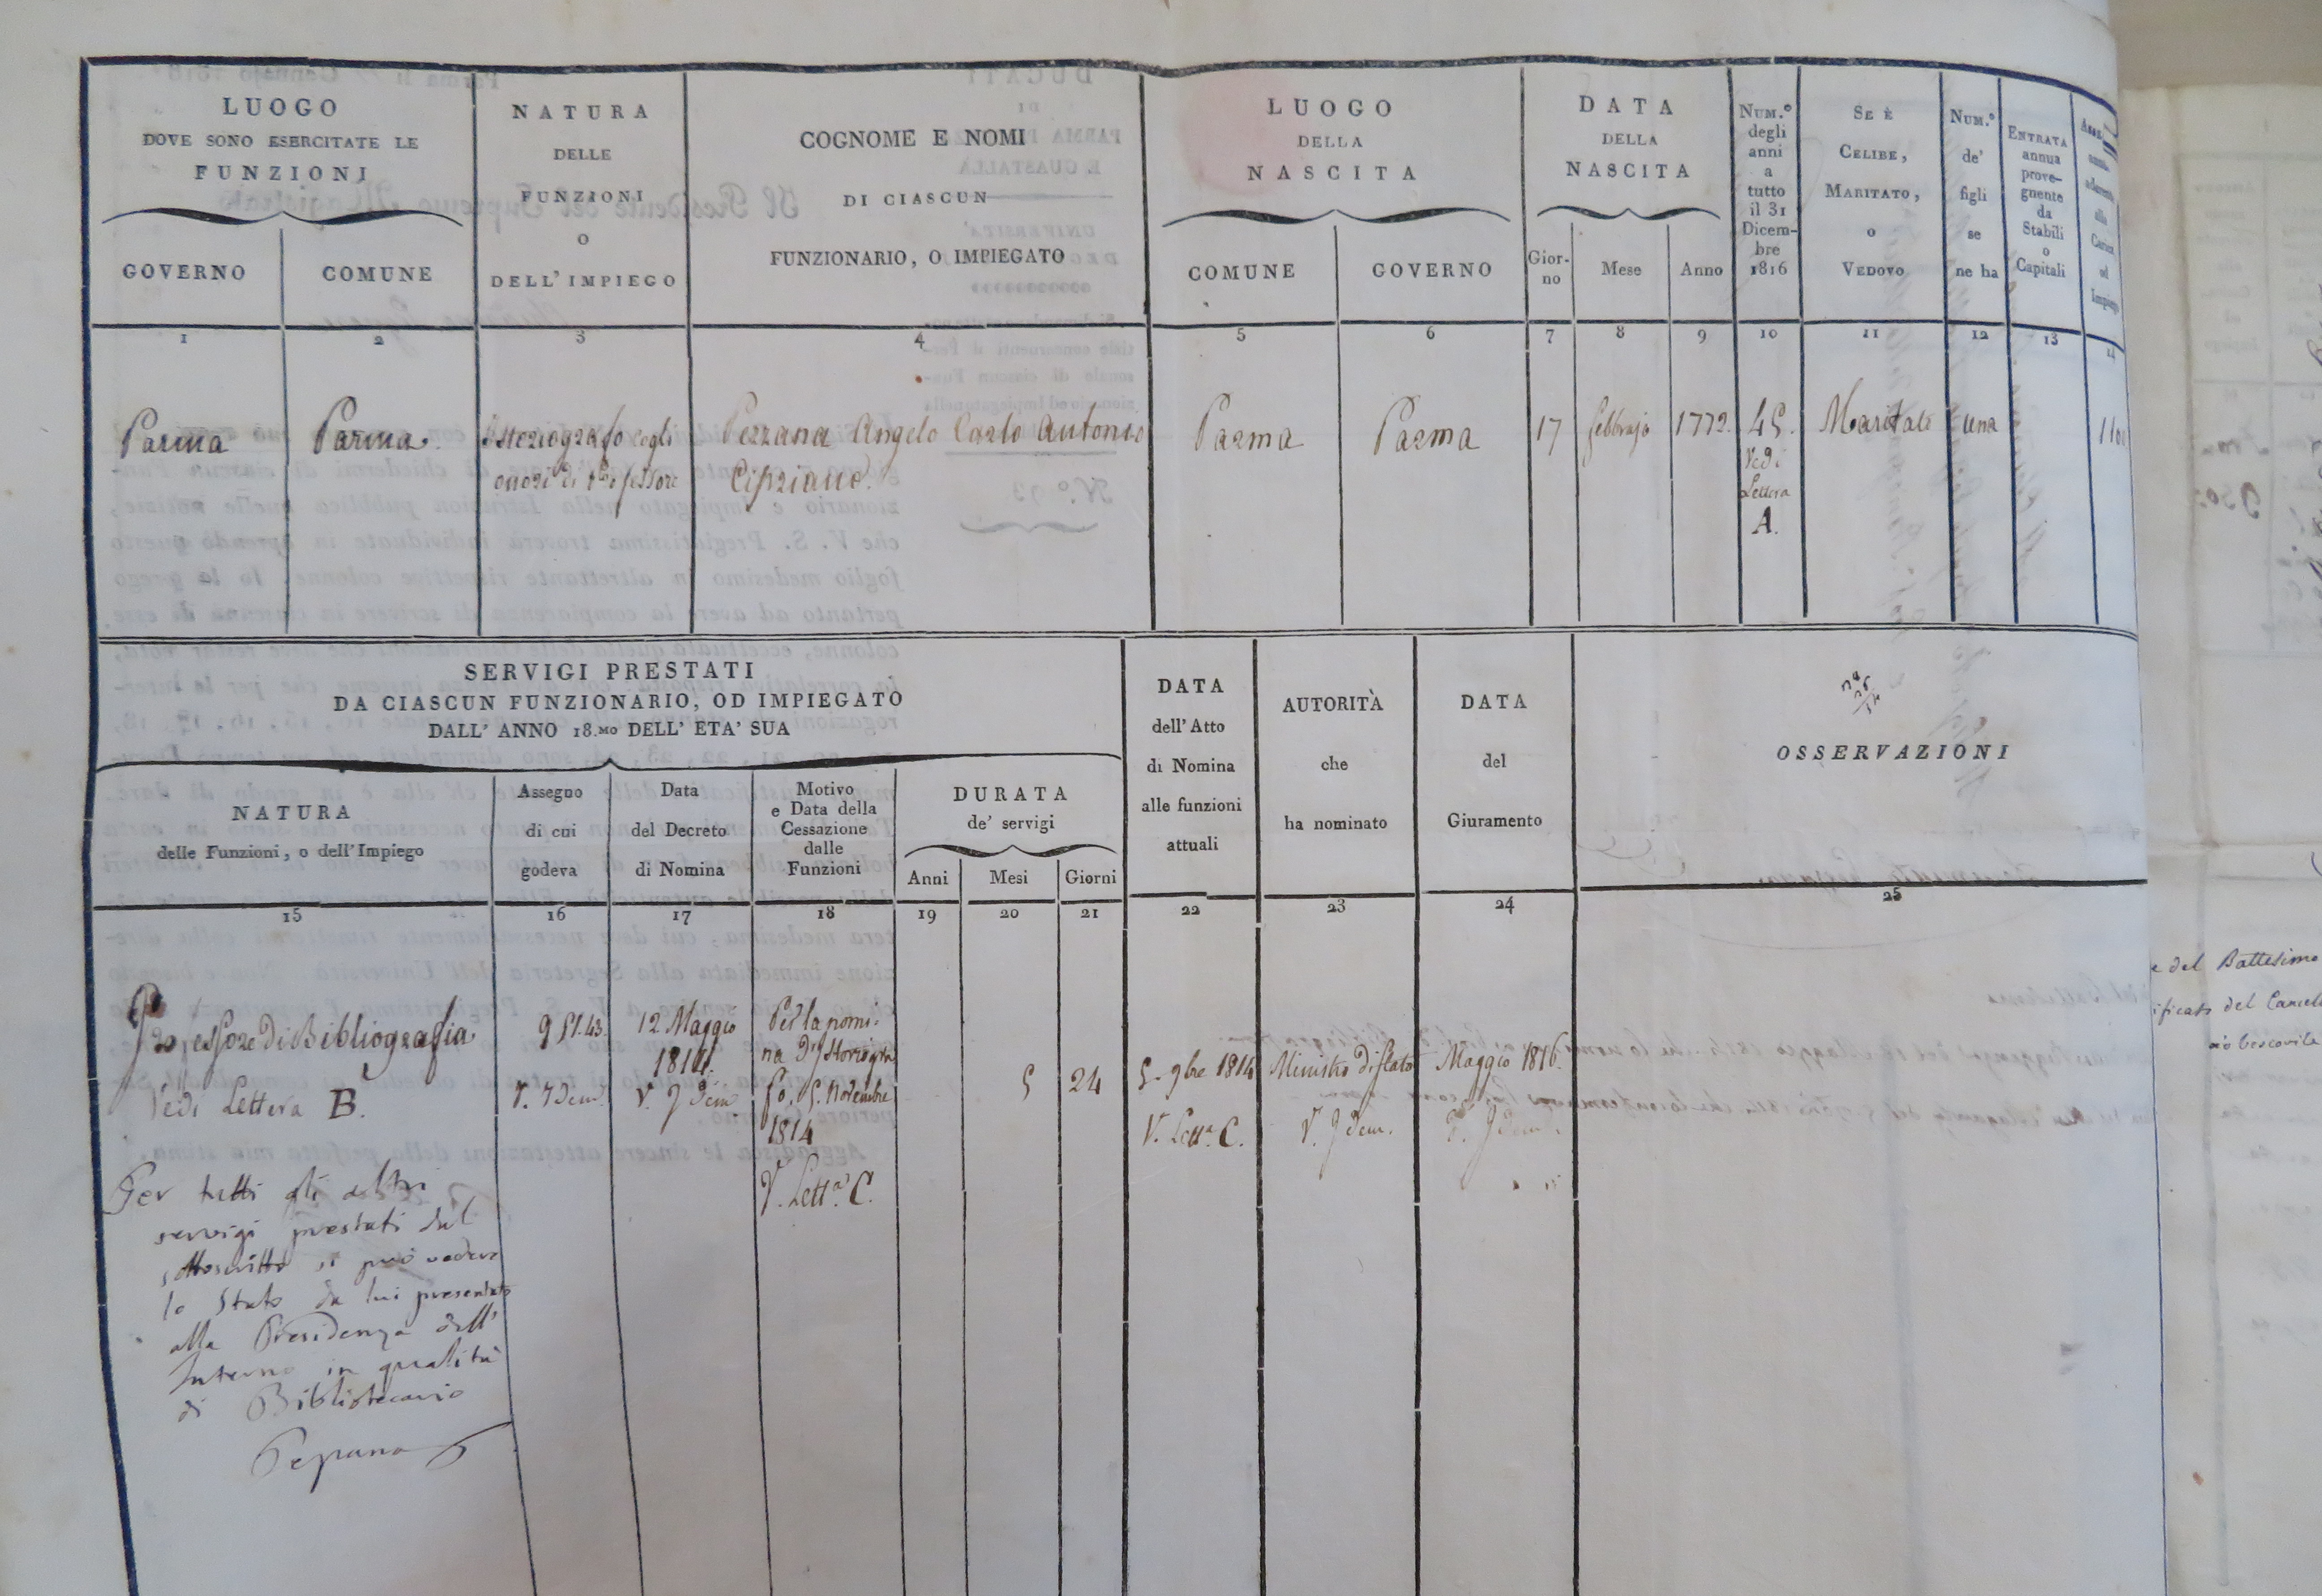 LUOGO
DOVE SONO ESERCITATE LE
FUNZIONI
GOVERNO
COMUNE
NATURA
DELLE
FUNZIONI
O
DELL' IMPIEGO
COGNOME E NOMI
DI CIASCUN
FUNZIONARIO, O IMPIEGATO
LUOGO
DELLA
NASCITA
COMUNE
GOVERNO
DATA
DELLA
NASCITA
Gior-
no
Mese
Anno
NUM.º
degli
anni
a
tutto
il 31
Dicem-
bre
1816
SE È
CELIBE,
MARITATO,
O
VEDOVO
NUM.º
de'
figli
se
ne ha
ENTRATA
annua
prove-
gnente
da
Stabili
o
Capitali
alla
Carica
od
Impiego
1 2 3 4 5 6 7 8 9 10 11 12 13 14
Parma
Parma.
Istoriografo cogli
onori di Professore
Pezzana Angelo Carlo Antonio
Cipriano.
Parma
Parma
17
febbrajo
1772.
45.
Vedi
Lettera
A.
Maritato
una
SERVIGI PRESTATI
DA CIASCUN FUNZIONARIO, OD IMPIEGATO
DALL' ANNO 18.MO DELL' ETA' SUA
NATURA
delle Funzioni, o dell'Impiego
Assegno
di cui
godeva
Data
del Decreto
di Nomina
Motivo
e Data della
Cessazione
dalle
Funzioni
DURATA
de' servigi
Anni
Mesi
Giorni
DATA
dell' Atto
di Nomina
alle funzioni
attuali
AUTORITÀ
che
ha nominato
DATA
del
Giuramento
OSSERVAZIONI
15 16 17 18 19 20 21 22 23 24 25
Professore di Bibliografia
Vedi Lettera B.
951.43.
V. Idem.
12 Maggio
1814.
V. Idem
Per la nomi-
na d'Istoriogra
fo, 5. Novembre
1814
V. Lett.ª C.
5
24
5. 9bre 1814
V. Lett.ª C.
Ministro di Stato
V. Idem.
Maggio 1816.
V. Idem.
Per tutti gli altri
servigi prestati dal
sottoscritto si può vedere
lo Stato da lui presentato
alla Presidenza dell'
Interno in qualità
di Bibliotecario
Pezzana
e del Battesimo
ificato del Cancell